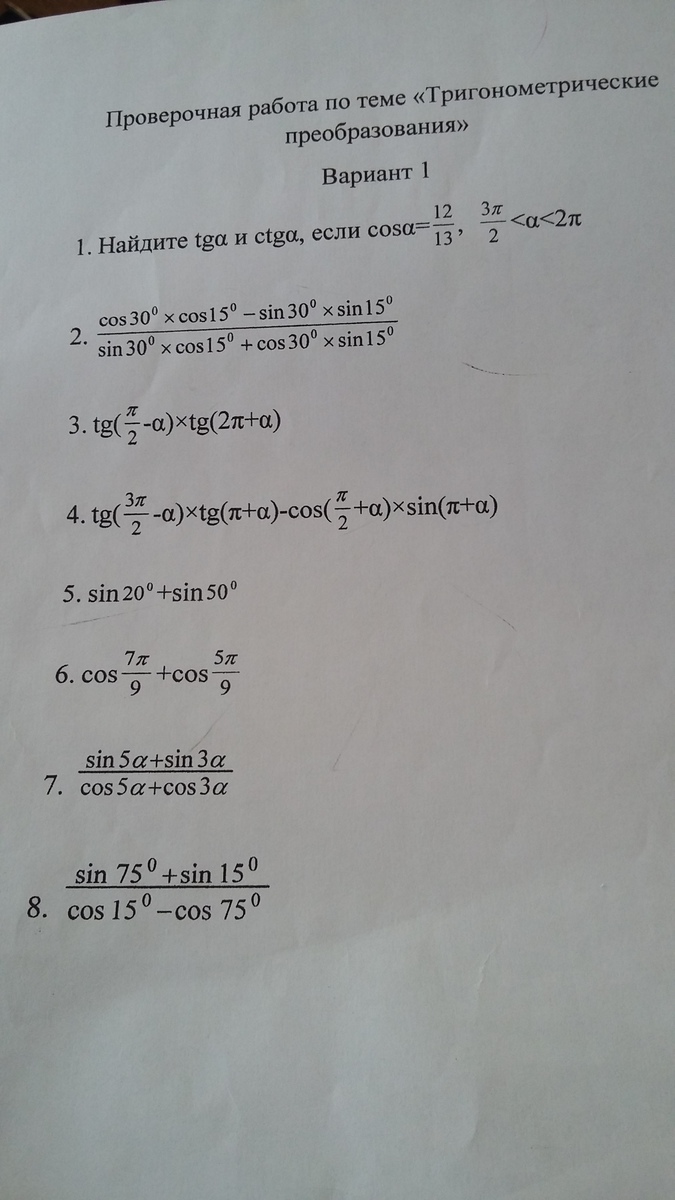 Проверочная работа по теме «Тригонометрические
преобразования»
Вариант 1
1. Найдите tgα и ctgα, если cosα=12/13, 3π/2<α<2π
2. (cos30⁰ × cos15⁰ − sin30⁰ × sin15⁰)/(sin30⁰ × cos15⁰ + cos30⁰ × sin15⁰)
3. tg(π/2-α)×tg(2π+α)
4. tg(3π/2-α)×tg(π+α)-cos(π/2+α)×sin(π+α)
5. sin20⁰+sin50⁰
6. cos7π/9+cos5π/9
7. (sin5α+sin3α)/(cos5α+cos3α)
8. (sin 75⁰+sin 15⁰)/(cos 15⁰−cos 75⁰)